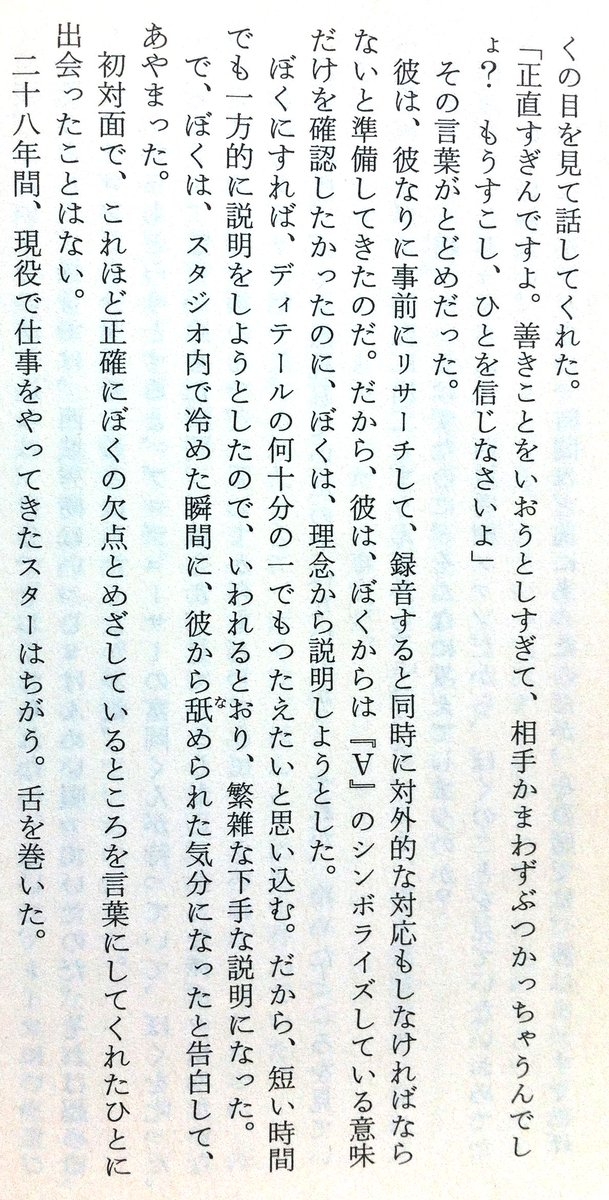 くの目を見て話してくれた。
「正直すぎんですよ。善きことをいおうとしすぎて、相手かまわずぶつかっちゃうんでし
ょ？　もうすこし、ひとを信じなさいよ」
その言葉がとどめだった。
彼は、彼なりに事前にリサーチして、録音すると同時に対外的な対応もしなければなら
ないと準備してきたのだ。だから、彼は、ぼくからは『∀』のシンボライズしている意味
だけを確認したかったのに、ぼくは、理念から説明しようとした。
ぼくにすれば、ディテールの何十分の一でもつたえたいと思い込む。だから、短い時間
でも一方的に説明をしようとしたので、いわれるとおり、繁雑な下手な説明になった。
で、ぼくは、スタジオ内で冷めた瞬間に、彼から舐められた気分になったと告白して、
な
あやまった。
初対面で、これほど正確にぼくの欠点とめざしているところを言葉にしてくれたひとに
出会ったことはない。
二十八年間、現役で仕事をやってきたスターはちがう。舌を巻いた。